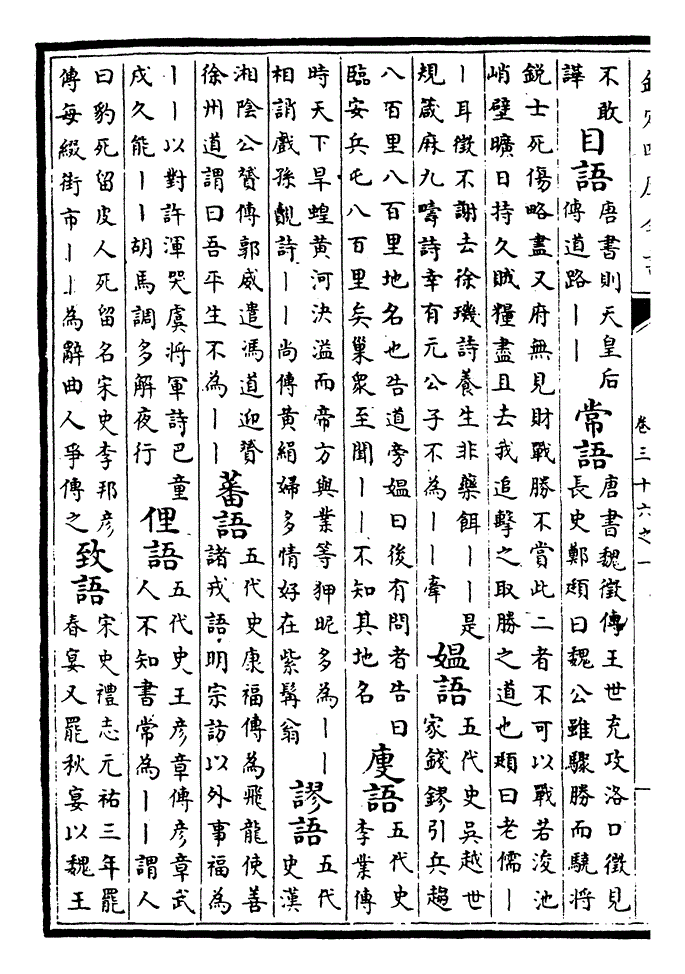 欽定四庫全書
卷三十六之一
不敢
譁
目語
唐書則天皇后
傳道路丨丨
常語
唐書魏徵傳王世充攻洛口徵見
長史鄭頲曰魏公雖驟勝而驍將
銳士死傷略盡又府無見財戰勝不賞此二者不可以戰若浚池
峭壁曠日持久賊糧盡且去我追擊之取勝之道也頲曰老儒丨
丨耳徵不謝去徐璣詩養生非藥餌丨丨是
規箴麻九疇詩幸有元公子不為丨丨牽
媼語
五代史吳越世
家錢鏐引兵趨
八百里八百里地名也告道旁媼曰後有問者告曰
臨安兵屯八百里矣巢衆至聞丨丨不知其地名
廋語
五代史
李業傳
時天下旱蝗黃河決溢而帝方與業等狎昵多為丨丨
相誚戲孫覿詩丨丨尚傳黃絹婦多情好在紫髯翁
謬語
五代
史漢
湘陰公贇傳郭威遣馮道迎贇
徐州道謂曰吾平生不為丨丨
蕃語
五代史康福傳為飛龍使善
諸戎語明宗訪以外事福為
丨丨以對許渾哭虞將軍詩巴童
戍久能丨丨胡馬調多解夜行
俚語
五代史王彥章傳彥章武
人不知書常為丨丨謂人
曰豹死留皮人死留名宋史李邦彥
傳每綴街市丨丨為辭曲人爭傳之
致語
宋史禮志元祐三年罷
春宴又罷秋宴以魏王